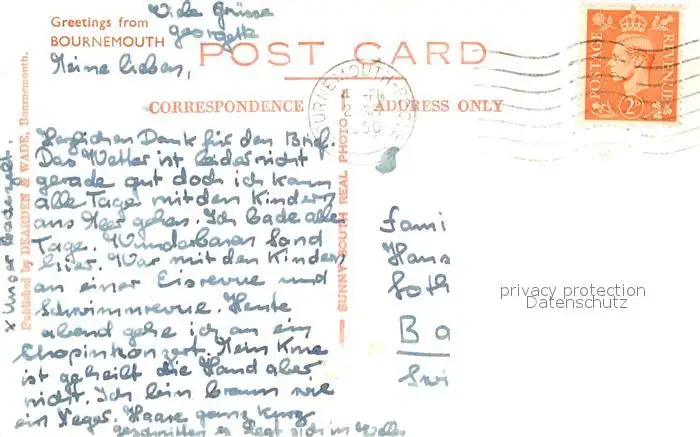 Viele Grüsse
Georgette
Greetings from
BOURNEMOUTH
POST CARD
Meine lieben,
CORRESPONDENCE
ADDRESS ONLY
Herzlichen Dank für den Brief.
Das Wetter ist leider nicht
gerade gut doch ich kann
alle Tage mit den Kindern
ans Meer gehen. Ich bade alle
Tage. Wunderbarer Sand
hier. War mit den Kindern
an einer Eisrevue und
Schwimmrevue. Heute
abend gehe ich an ein
Chopinkonzert. Mein Knie
ist geheilt die Hand aber
nicht. Ich bin braun wie
ein Neger. Haare ganz kurz
geschnitten es legt sich in Wellen
x Unser Badezelt.
Published by DEARDEN & WADE, Bournemouth.
SUNNY SOUTH REAL PHOTO
BOURNEMOUTH-POOLE
1950
POSTAGE
REVENUE
2D
Fami
Hans
Goth
Ba
Swi
privacy protection
Datenschutz